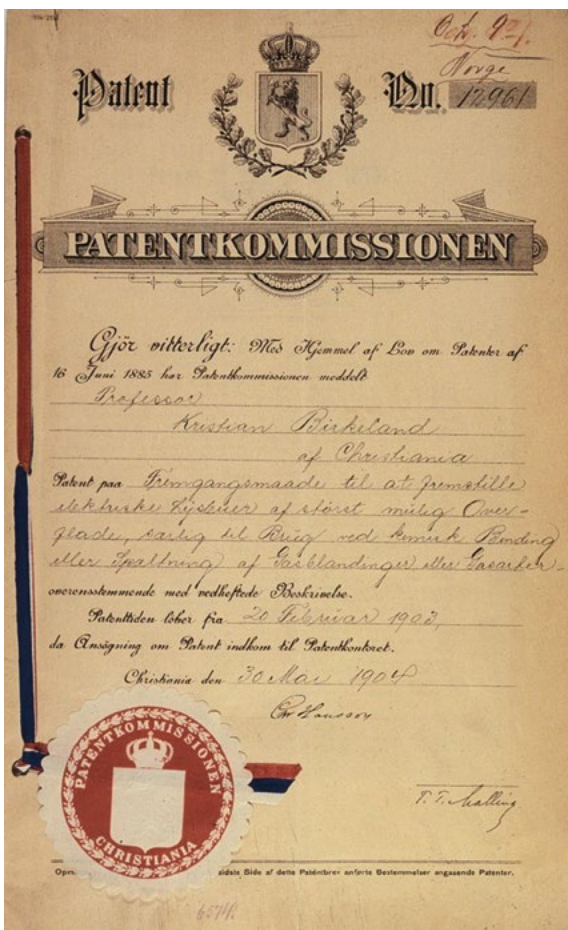 Octr. 921.
Norge
Patent No. 12961
PATENTKOMMISSIONEN
Gjör vitterligt: Med Hjemmel af Lov om Patenter af
16 Juni 1885 har Patentkommissionen meddelt
Professor
Kristian Birkeland
af Christiania
Patent paa Fremgangsmaade til at fremstille
elektriske Lysbuer af störst mulig Over-
flade, særlig til Brug ved kemisk Binding
eller Spaltning af Gasblandinger eller Gasarter
overensstemmende med vedheftede Beskrivelse.
Patenttiden löber fra 20 Februar 1903,
da Ansögning om Patent indkom til Patentkontoret.
Christiania den 30 Mai 1904
PATENTKOMMISSIONEN
CHRISTIANIA
sidste Side af dette Patentbrev anförte Bestemmelser angaaende Patenter.